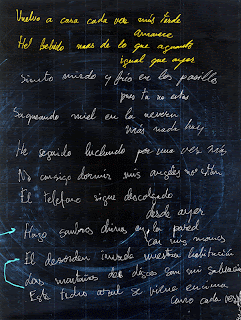 Vuelvo a casa cada vez más tarde
amanece
He bebido más de lo que aguanto
igual que ayer
Siento miedo y frío en los pasillos
pues tu no estas
Saqueando miel en la nevera
más nada hay
He seguido luchando por una vez más
No consigo dormir mis angeles no están
El telefono sigue descolgado
desde ayer
Hago sombras chinas en la pared
con mis manos
El desorden invade nuestra habitación
Las mañanas de deseo son mi
Este techo azul se viene encima
cada vez